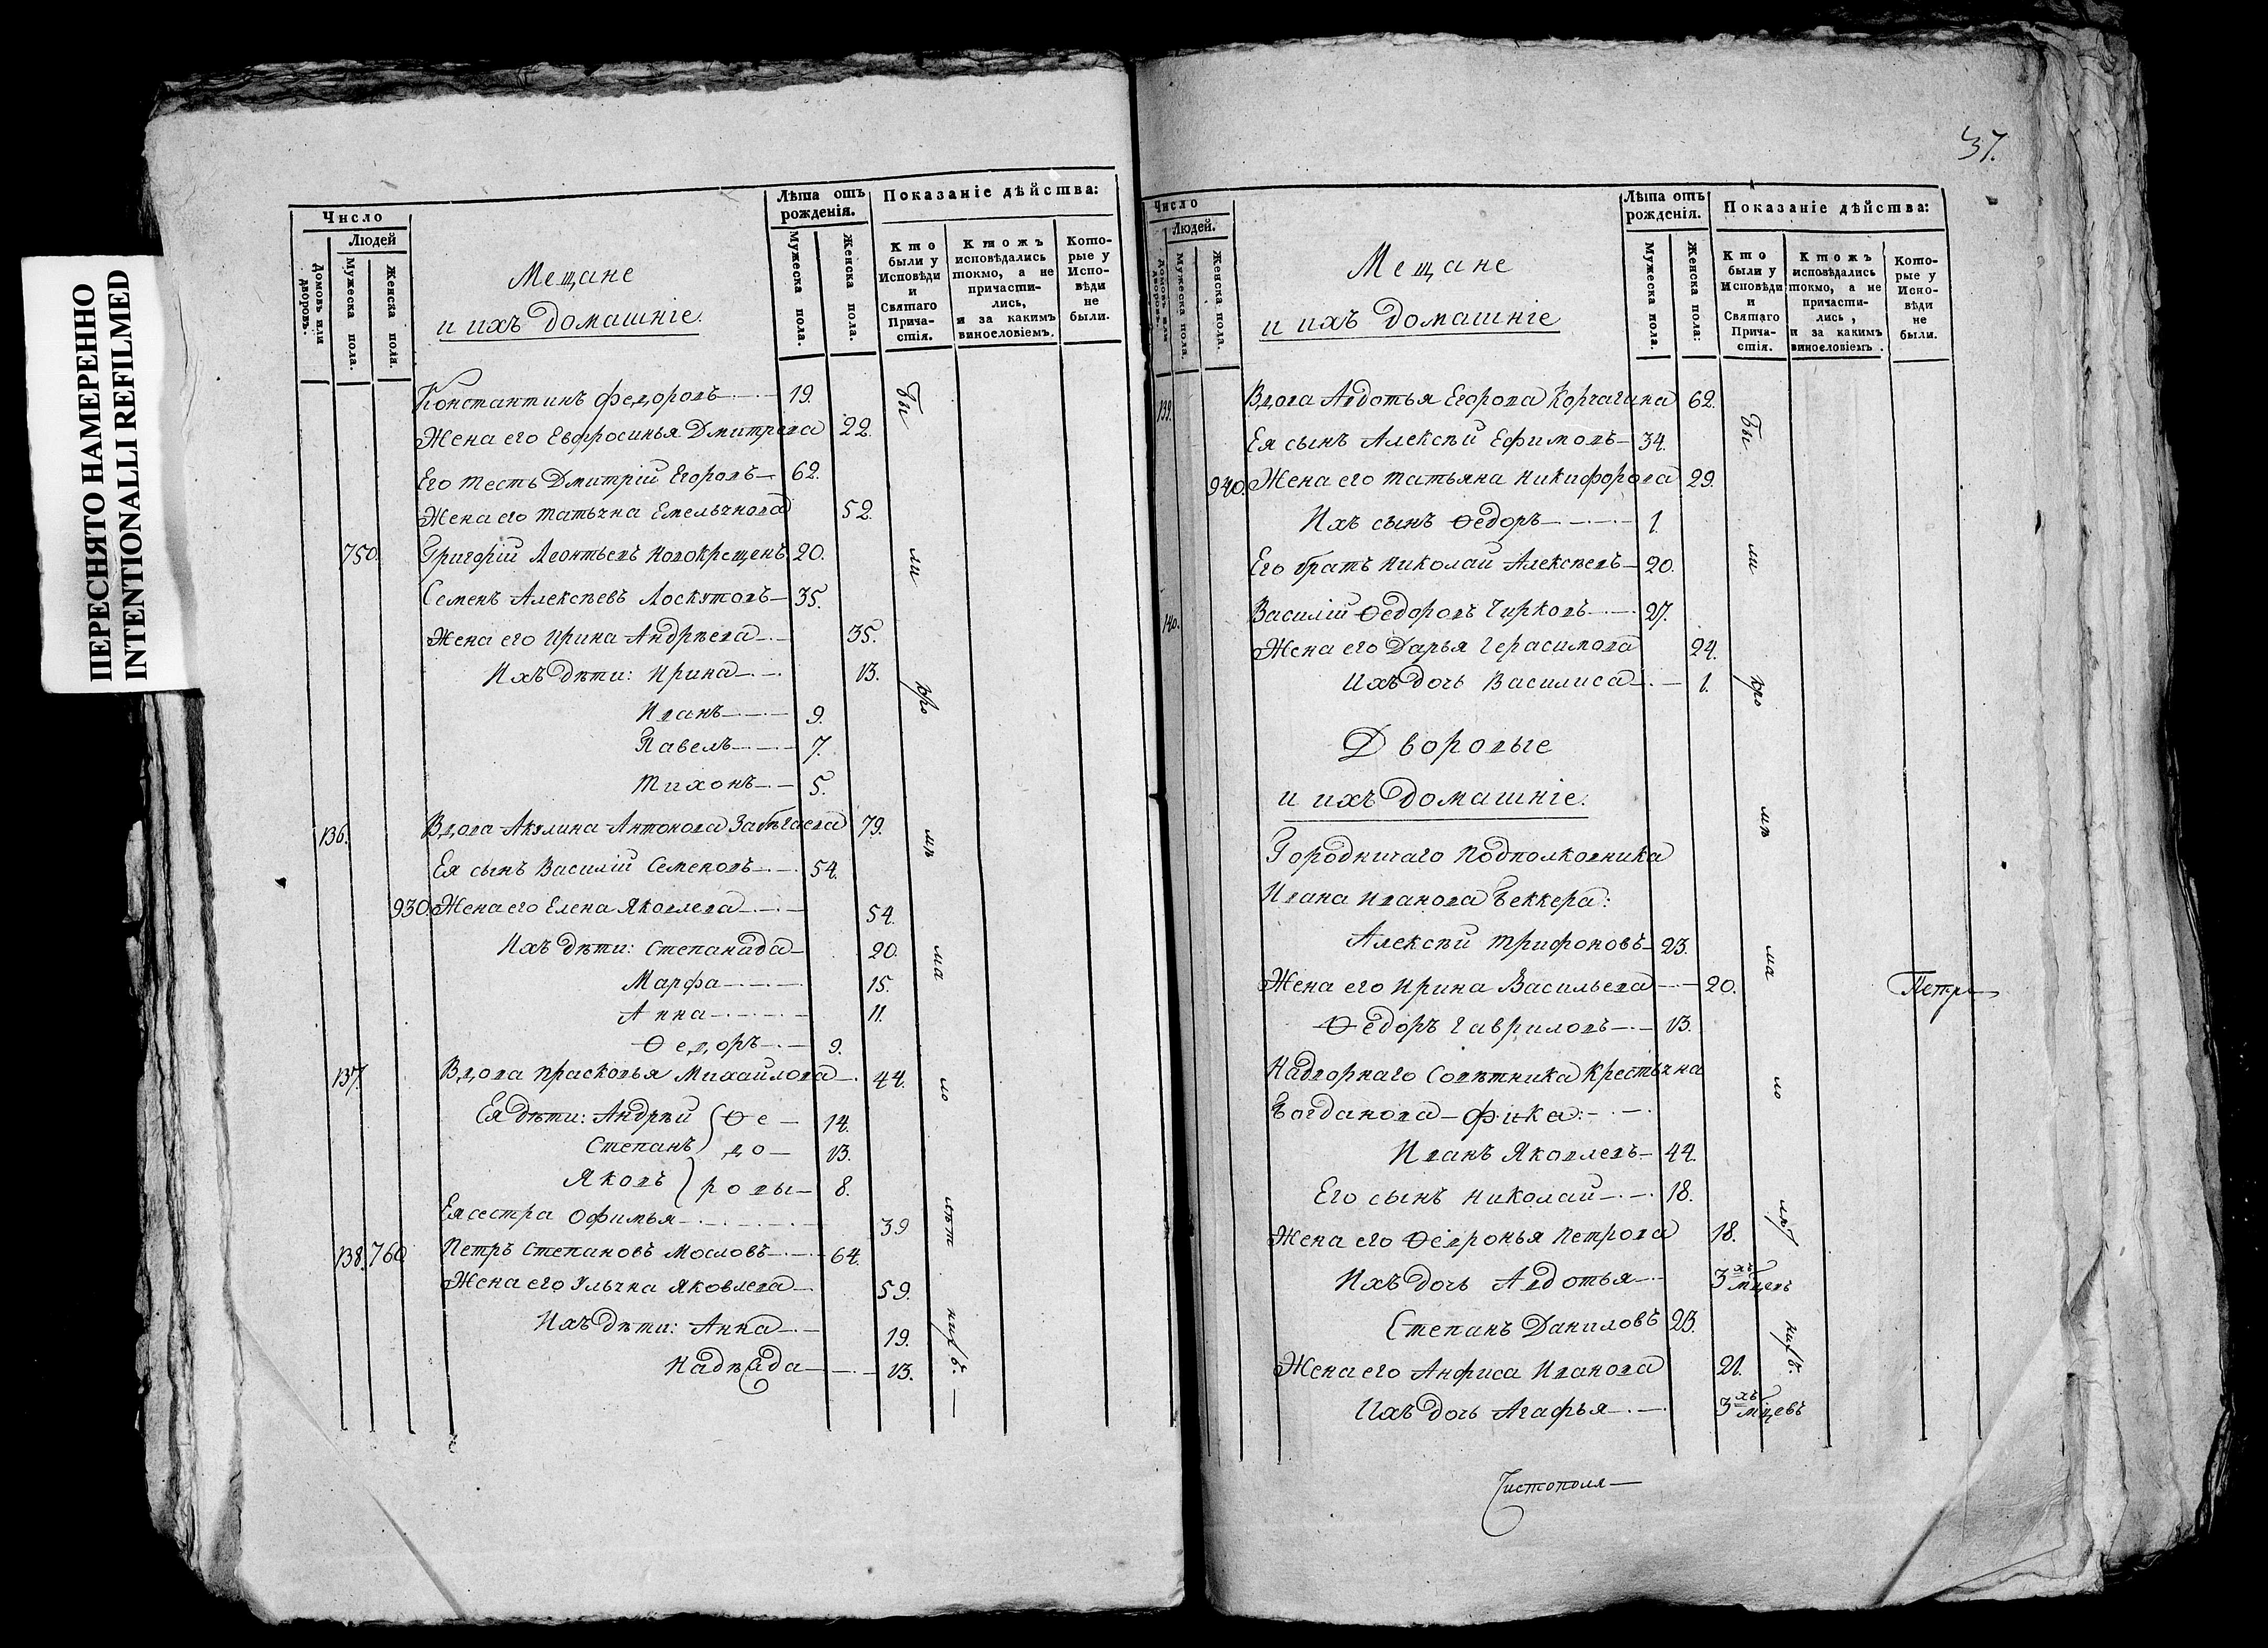 ПЕРЕСНЯТО НАМЕРЕННО
INTENTIONALLI REFILMED
Число
Людей
Домовъ или дворовъ.
Мужеска пола.
Женска пола.
Мещане
и ихъ домашніе.
Лѣта отъ рожденія.
Мужеска пола.
Женска пола.
Показаніе дѣйства:
Кто были у Исповѣди и Святаго Причастія.
Ктожъ исповѣдались токмо, а не причастились, и за какимъ винословіемъ.
Которые у Исповѣди не были.
Константинъ Федоровъ 19.
Жена его Евфросинья Дмитрева 22.
Его тесть Дмитрій Егоровъ 62.
Жена его Татьяна Емельянова 52.
750. Григорій Леонтьевъ Новокрещенъ 20.
Семенъ Алексѣевъ Лоскутовъ 35.
Жена его Ирина Андрѣева 35.
Ихъ дѣти: Ирина 13.
Иванъ 9.
Павелъ 7.
Тихонъ 5.
136. Вдова Акулина Антонова Забѣгаева 79.
Ея сынъ Василій Семеновъ 54.
930. Жена его Елена Яковлева 54.
Ихъ дѣти: Степанида 20.
Марфа 15.
Анна 11.
Ѳедоръ 9.
137. Вдова Прасковья Михайлова 44.
Ея дѣти: Андрѣй Ѳе 14.
Степанъ до 13.
Яковъ ровы 8.
Ея сестра Офимья 39
138. 760. Петръ Степановъ Мословъ 64.
Жена его Ульяна Яковлева 59.
Ихъ дѣти: Анна 19.
Надѣжда 13.
Бы
ли
про
мѣ
ма
ло
лѣт
ныхъ.
37.
Число
Людей.
Домовъ или дворовъ.
Мужеска пола.
Женска пола.
Мещане
и ихъ домашніе
Лѣта отъ рожденія.
Мужеска пола.
Женска пола:
Показаніе дѣйства:
Кто были у Исповѣди и Святаго Причастія.
Ктожъ исповѣдались токмо, а не причастились, и за какимъ винословіемъ.
Которые у Исповѣди не были.
139. Вдова Авдотья Егорова Корчагина 62.
Ея сынъ Алексѣй Ефимовъ 34.
940. Жена его Татьяна Никифорова 29.
Ихъ сынъ Ѳедоръ 1.
Его братъ Николай Алексѣевъ 20.
140. Василій Ѳедоровъ Чирковъ 27.
Жена его Дарья Герасимова 24.
Ихъ дочь Василиса 1.
Дворовые
и ихъ домашніе:
Городничаго Подполковника
Ивана Иванова Беккера:
Алексѣй Трифоновъ 23.
Жена его Ирина Васильева 20.
Ѳедоръ Гавриловъ 13.
Надворнаго Совѣтника Крестьяна
Богданова Фика:
Иванъ Яковлевъ 44.
Его сынъ Николай 18.
Жена его Ѳевронья Петрова 18.
Ихъ дочь Авдотья 3хъ мцевъ
Степанъ Даниловъ 23.
Жена его Анфиса Иванова 21.
Ихъ дочь Агафья 3хъ мцевъ
Бы
ли
про
мѣ
ма
ло
лѣт
ныхъ.
Петръ
Чистополя